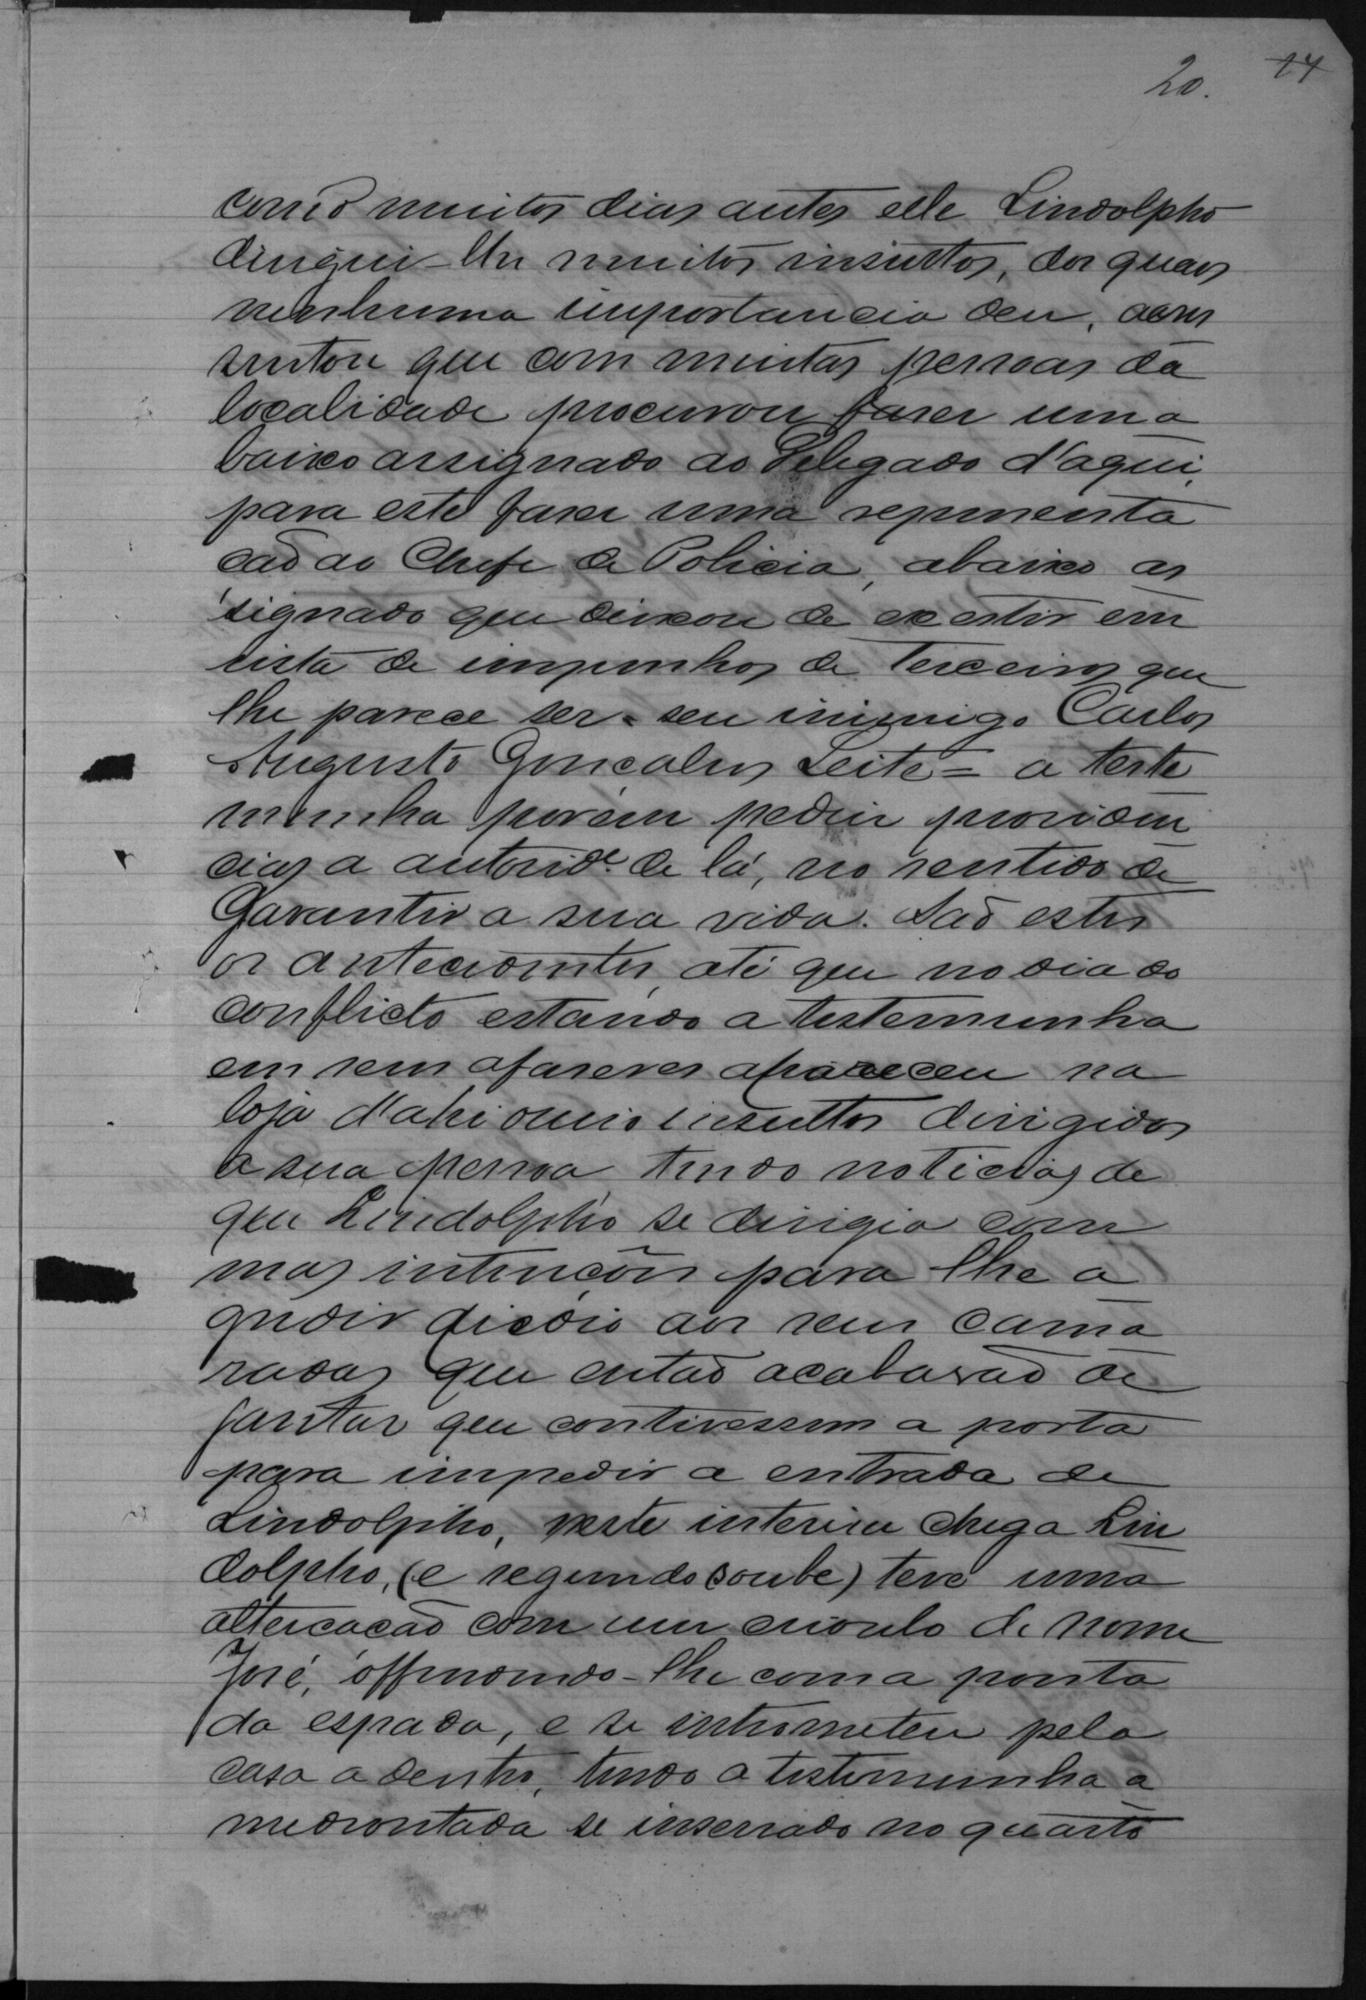 20. 17
como muitos dias antes elle Lindolpho
dirigui-lhe muitos insultos, dos quaes
nenhuma importancia deu, acres
sentou que com muitas pessoas da
localidade procurou faser um a
baixo assignado ao Delegado d'aqui,
para este faser uma representa
ção ao Chefe de Policia, abaixo as
signado que deixou de existir em
vista de impenhos de terceiros que
lhe parece ser seu inimigo Carlos
Augusto Gonçalves Leite = a teste
munha porém pediu providen
cias a autorid.e de lá, no sentido de
Garantir a sua vida. São estes
os antecedentes, até que no dia do
conflicto estando a testemunha
em seus afaseres apareceu na
loja d'ahi ouvio insultos dirigidos
a sua pessoa tendo noticias de
que Lindolpho se dirigia com
mas intenções para lhe a
gredir disse aos seus cama
radas que então acabavão de
jantar que contivessem a porta
para impedir a entrada de
Lindolpho, neste interim chega Lin
dolpho, (e segundo soube) teve uma
altercação com um crioulo de nome
José, offendendo-lhe com a ponta
da espada, e se intrometeu pela
casa a dentro, tendo a testemunha a
medrontada se inserrado no quarto